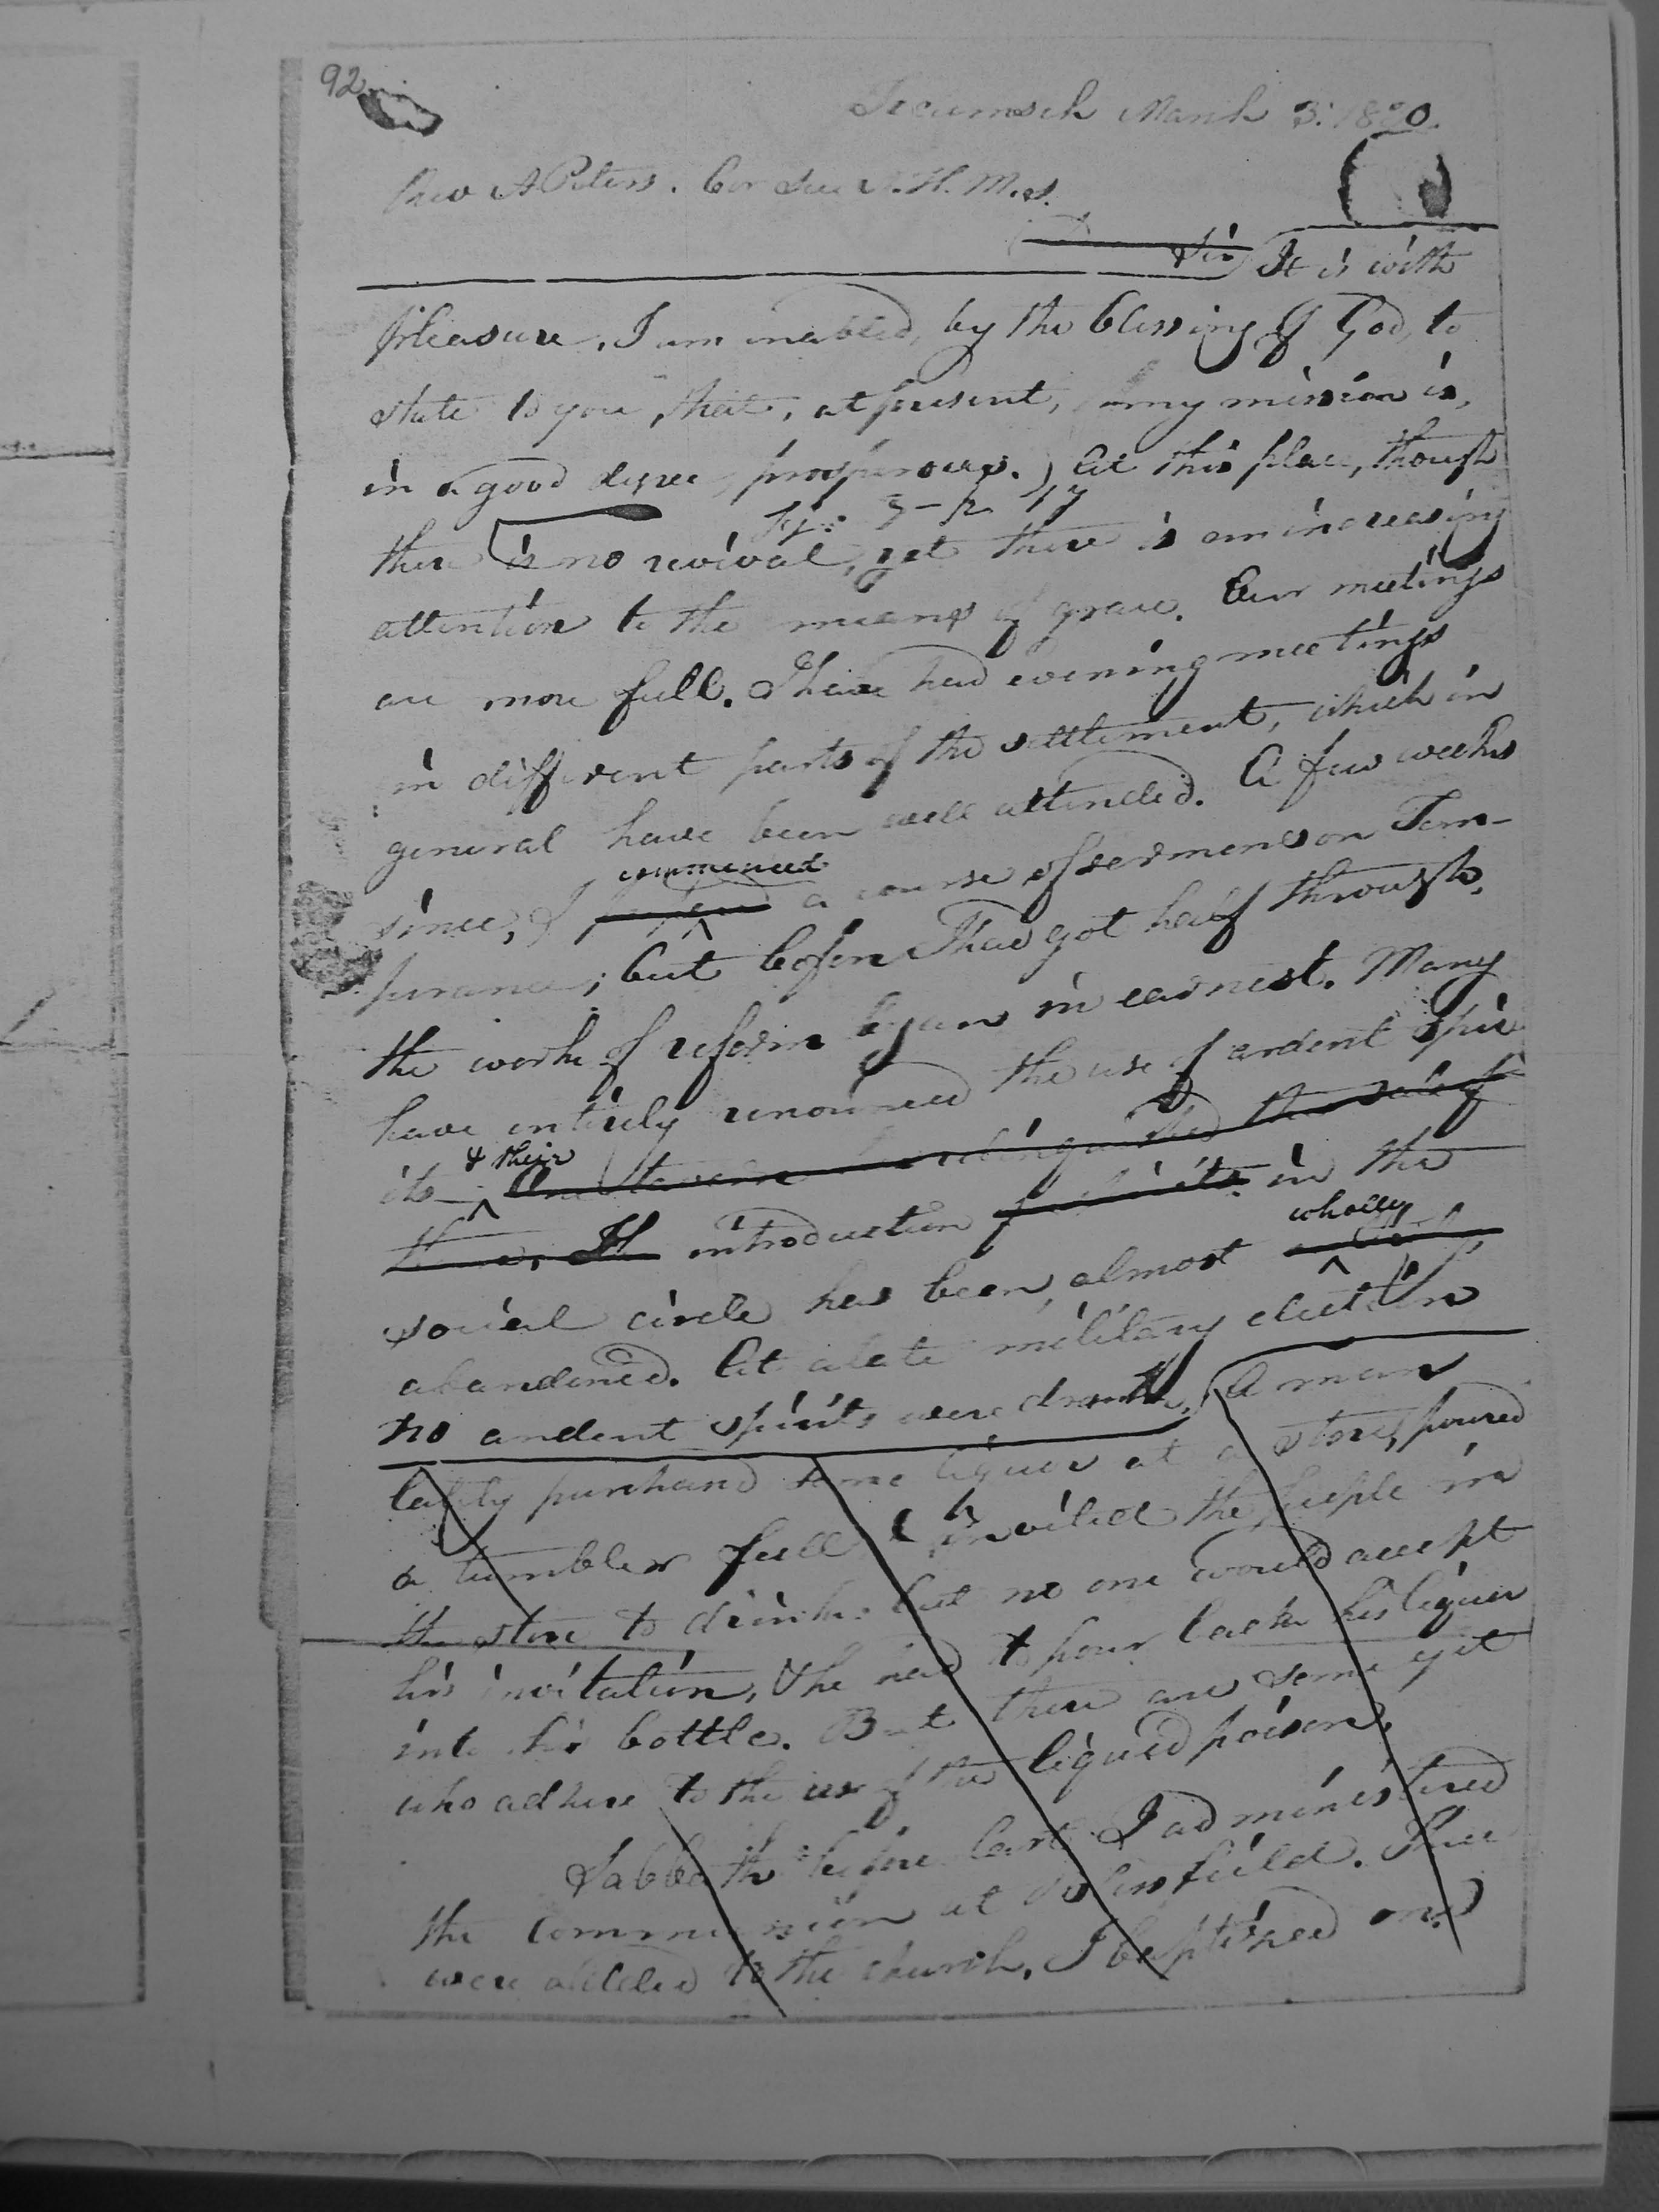 92
Tecumseh March 3. 1830.
Rev A Peters. Cor Sec A. H. M. S.
Sir It is with
pleasure, I am inabled, by the blessing of God, to
state to you, that, at present, my mission is,
in a good degree, prosperous. At this place, though
there is no revival, yet there is an increasing
attention to the means of grace. Our meetings
are more full. I have had evening meetings
in different parts of the settlement, which in
general have been well attended. A few weeks
since, I commenced a course of sermons on Tem-
perance; but before I had got half through,
the work of reform began in earnest. Many
have entirely renounced the use of ardent spir
its & their One tavern has relinquished the sale of
them. It introduction of spirits in the
social circle has been, almost wholly
abandoned. At a late military election
no ardent spirits were drank. A man
lately purchased some liquor at a store, poured
a tumbler full & invited the people in
the store to drink. but no one would accept
his invitation, & he had to pour back his liquor
into his bottle. But there are some yet
who adhere to the use of the liquid poison.
Sabbath before last I administered
the communion at Blissfield. Three
were added to the church. I baptised one.